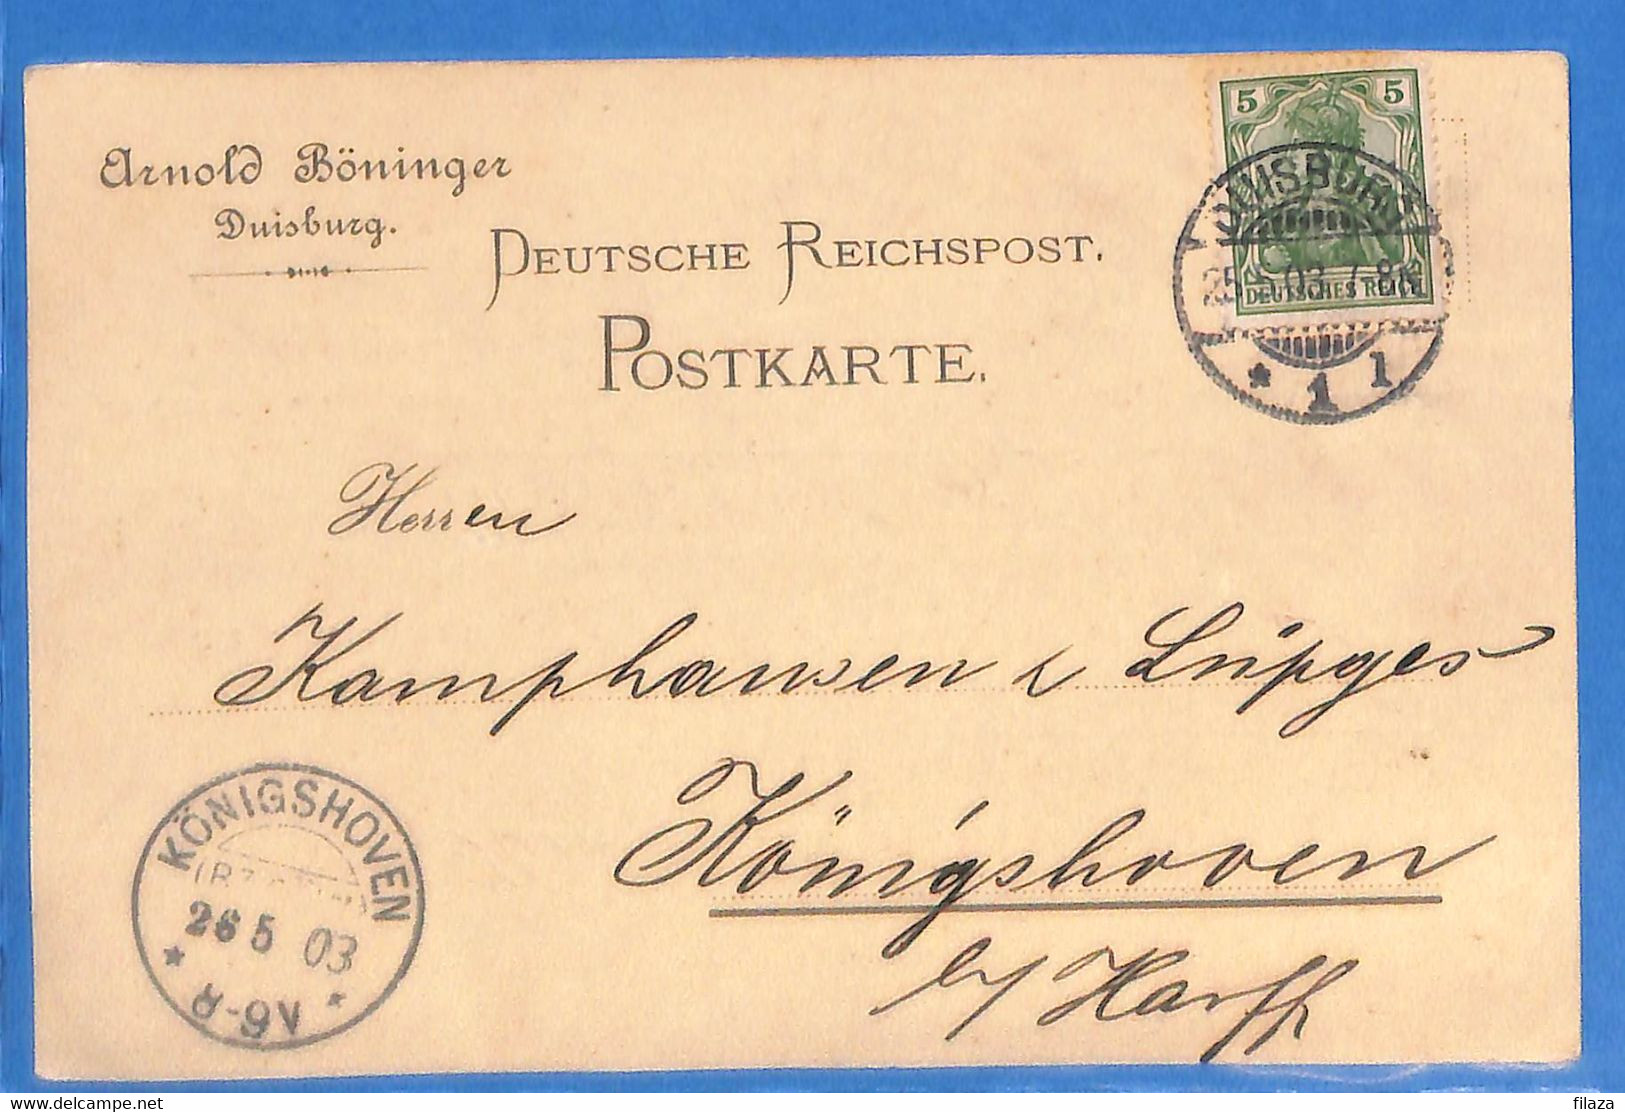 Arnold Böninger
Duisburg.
DEUTSCHE REICHSPOST.
POSTKARTE.
5 5
DEUTSCHES REICH
DUISBURG
25 5 03 7-8N
* 1 1
Herren
Kamphausen & Lüpges
Königshoven
b/ Harff
KÖNIGSHOVEN
26 5 03
* 8-9V *
delcampe.net
filaza